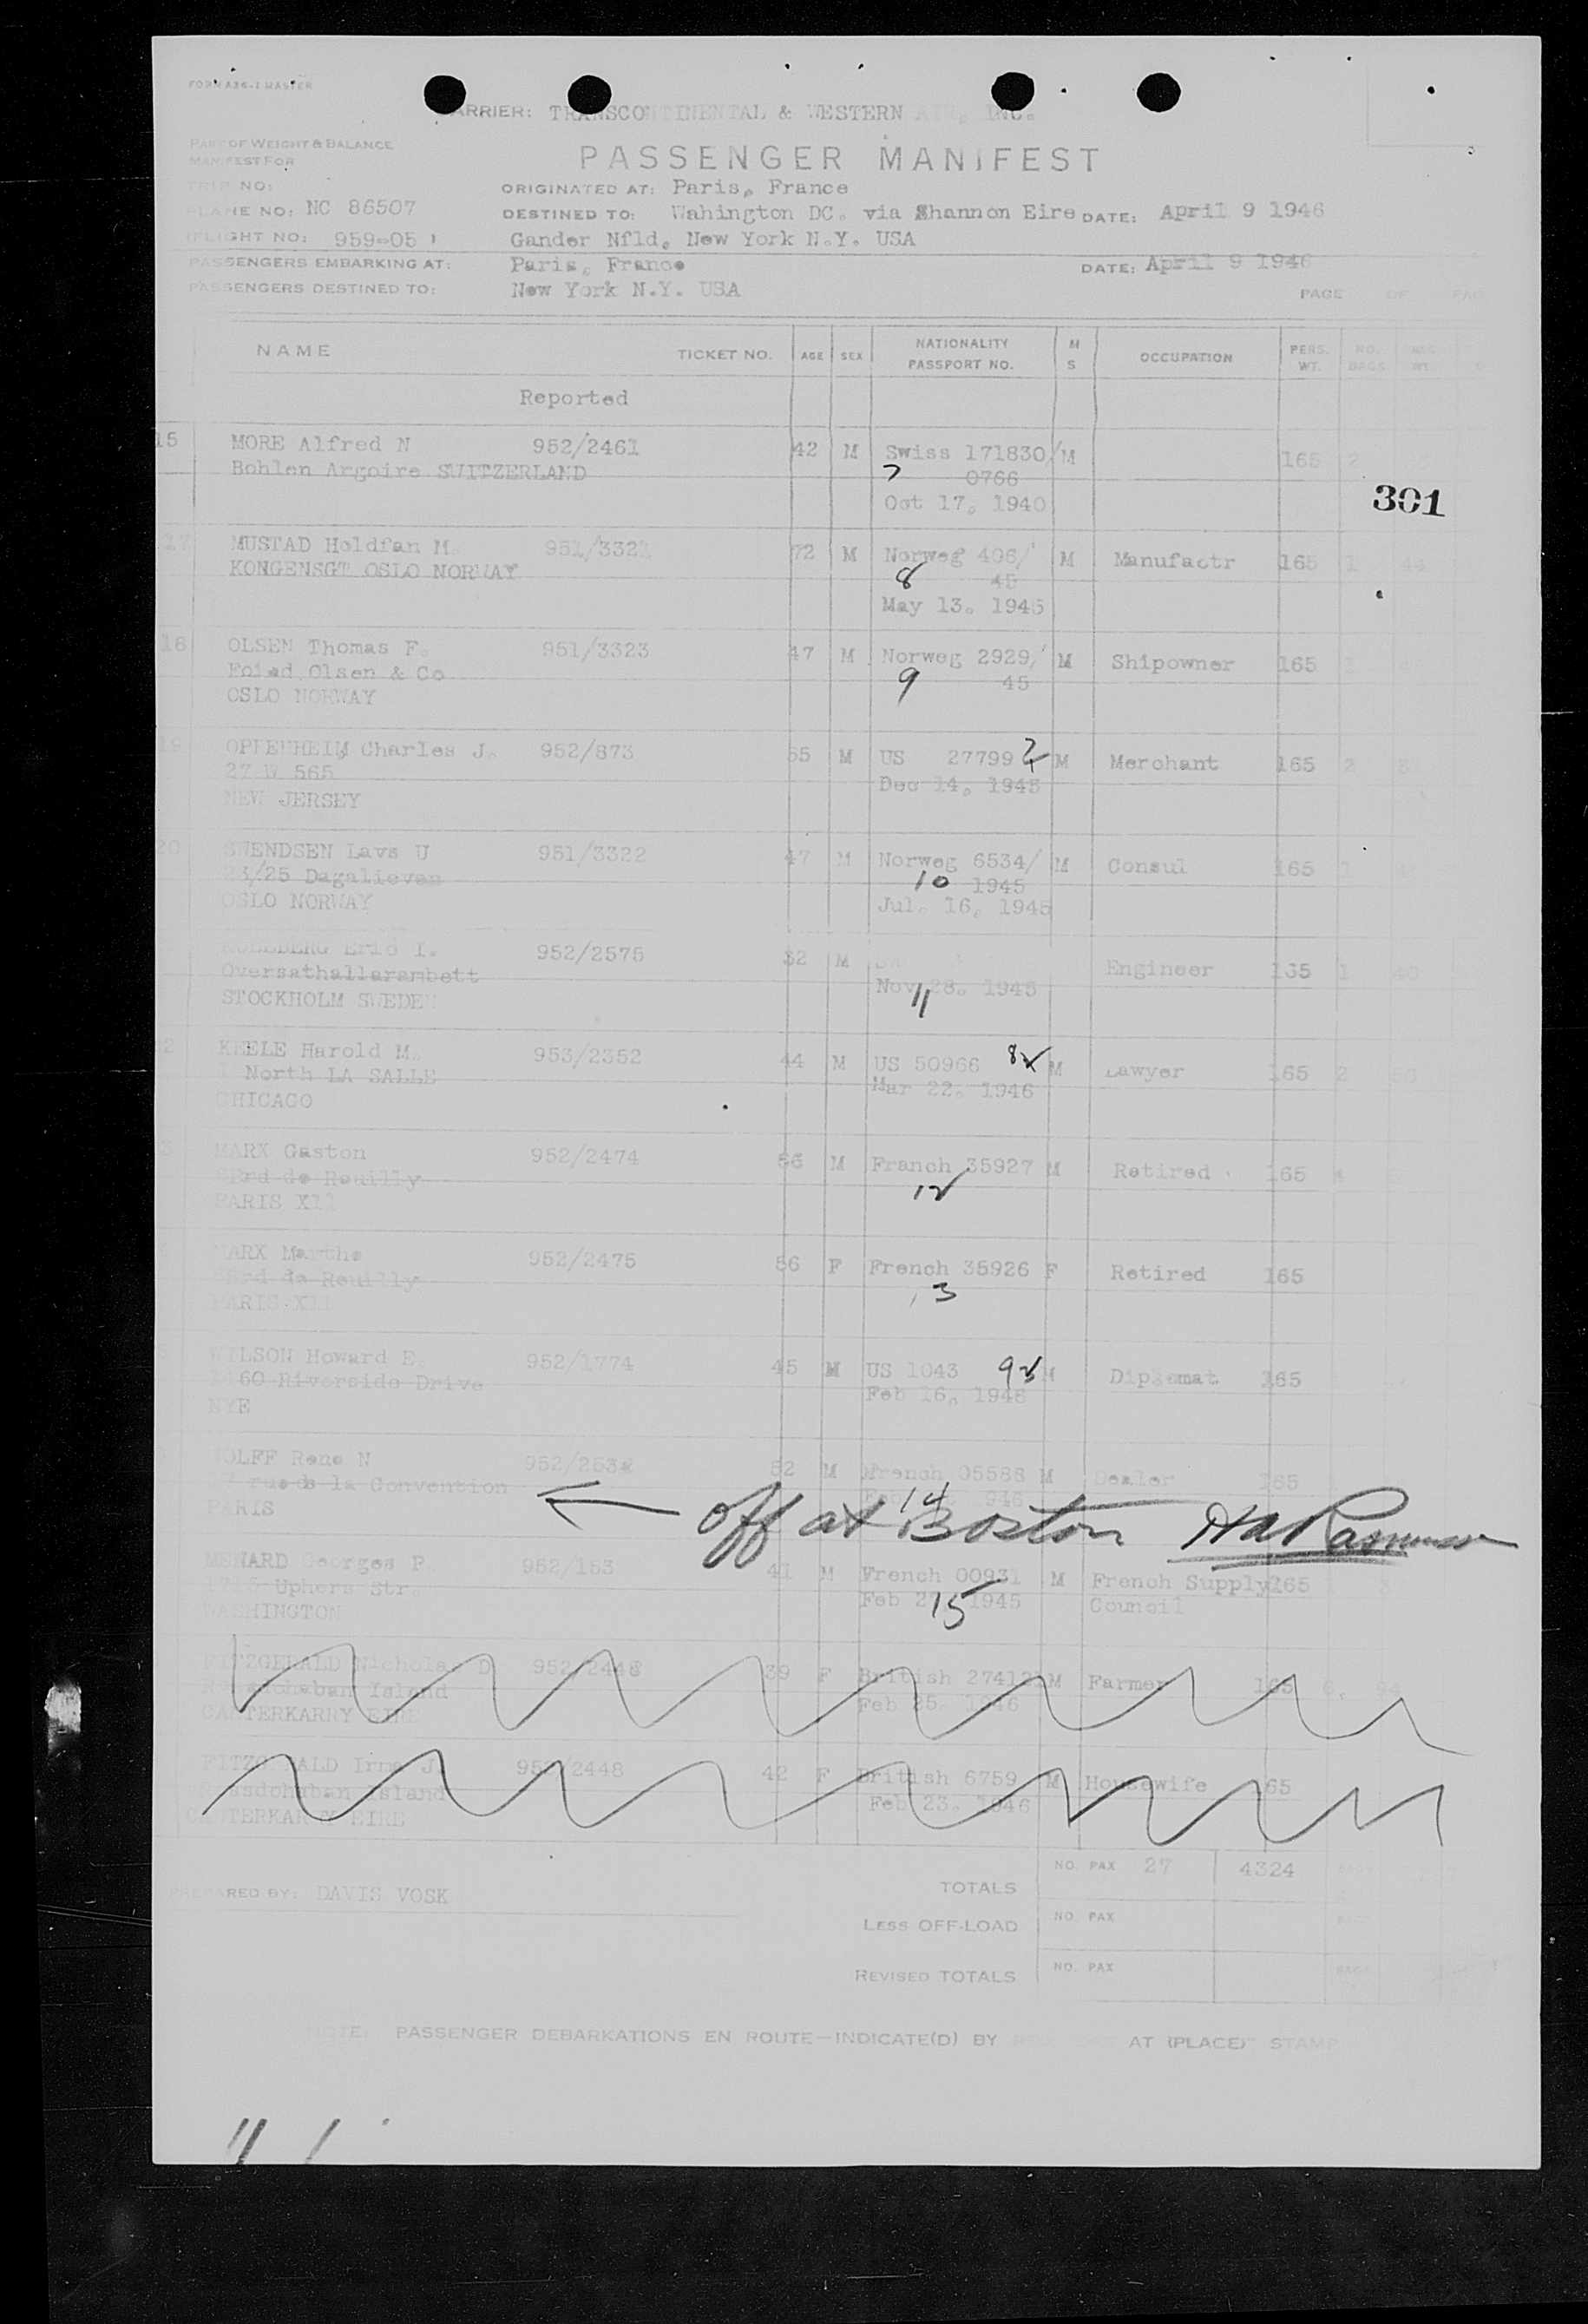 FORM A36-1 MASTER
CARRIER: TRANSCONTINENTAL & WESTERN AIR, INC.
PART OF WEIGHT & BALANCE
MANIFEST FOR
PASSENGER MANIFEST
TRIP NO:
ORIGINATED AT: Paris, France
PLANE NO: NC 86507
DESTINED TO: Wahington DC. via Shannon Eire DATE: April 9 1946
FLIGHT NO: 959-05
Gander Nfld, New York N.Y. USA
PASSENGERS EMBARKING AT: Paris, France DATE: April 9 1946
PASSENGERS DESTINED TO: New York N.Y. USA
PAGE OF
NAME TICKET NO. AGE SEX NATIONALITY PASSPORT NO. M S OCCUPATION PERS. WT. NO. BAGS WT.
Reported
15 MORE Alfred N 952/2461 42 M Swiss 171830/ M 165 2
Bohlen Argoire SWITZERLAND 7 0766
Oct 17, 1940
301
17 MUSTAD Holdfan M. 951/3321 72 M Norweg 406/ M Manufactr 165 1 44
KONGENSGT OSLO NORWAY 8 45
May 13. 1945
18 OLSEN Thomas F. 951/3323 47 M Norweg 2929/ M Shipowner 165 1
Foied Olsen & Co 9 45
OSLO NORWAY
19 OPPENHEIM Charles J. 952/873 55 M US 27799 M Merchant 165 2
27 W 565 Dec 14, 1945
NEW JERSEY
20 SWENDSEN Lavs U 951/3322 47 M Norweg 6534/ M Consul 165 1
/25 Dagalievan 10 1945
OSLO NORWAY Jul. 16, 1945
Eric I. 952/2575 32 M Engineer 135 1
Oversathallarambett Nov 28. 1945
STOCKHOLM SWEDEN 11
KEELE Harold M. 953/2352 44 M US 50966 8 M Lawyer 165 2
North LA SALLE Mar 22. 1946
CHICAGO
MARX Gaston 952/2474 56 M Franch 35927 M Retired 165
Brd de Reuilly 12
PARIS XII
MARX Marthe 952/2475 56 F French 35926 F Retired 165
Brd de Reuilly 13
PARIS XII
WILSON Howard E. 952/1774 45 M US 1043 9 M Diplomat 165
460 Riverside Drive Feb 16, 1946
NYE
WOLFF Rene N 952/253 52 M French 05588 M Dealer 165
rue de la Convention 14
PARIS
← off at Boston HA Rasmussen
MENARD Georges P. 952/153 41 M French 00931 M French Supply 165
Uphers Str. Feb 2 1945 Council
WASHINGTON 15
FITZGERALD Nicholas D 952/2448 39 F British 27412 M Farmer 165
Island Feb 25. 1946
CANTERKARRY EIRE
FITZGERALD Irma J. 952/2448 42 F British 6759 M Housewife 165
Island Feb 23. 1946
CANTERKARRY EIRE
TOTALS NO. PAX 27 4324
PREPARED BY: DAVIS VOSK
LESS OFF-LOAD NO. PAX
REVISED TOTALS NO. PAX
NOTE: PASSENGER DEBARKATIONS EN ROUTE—INDICATE(D) BY AT (PLACE) STAMP